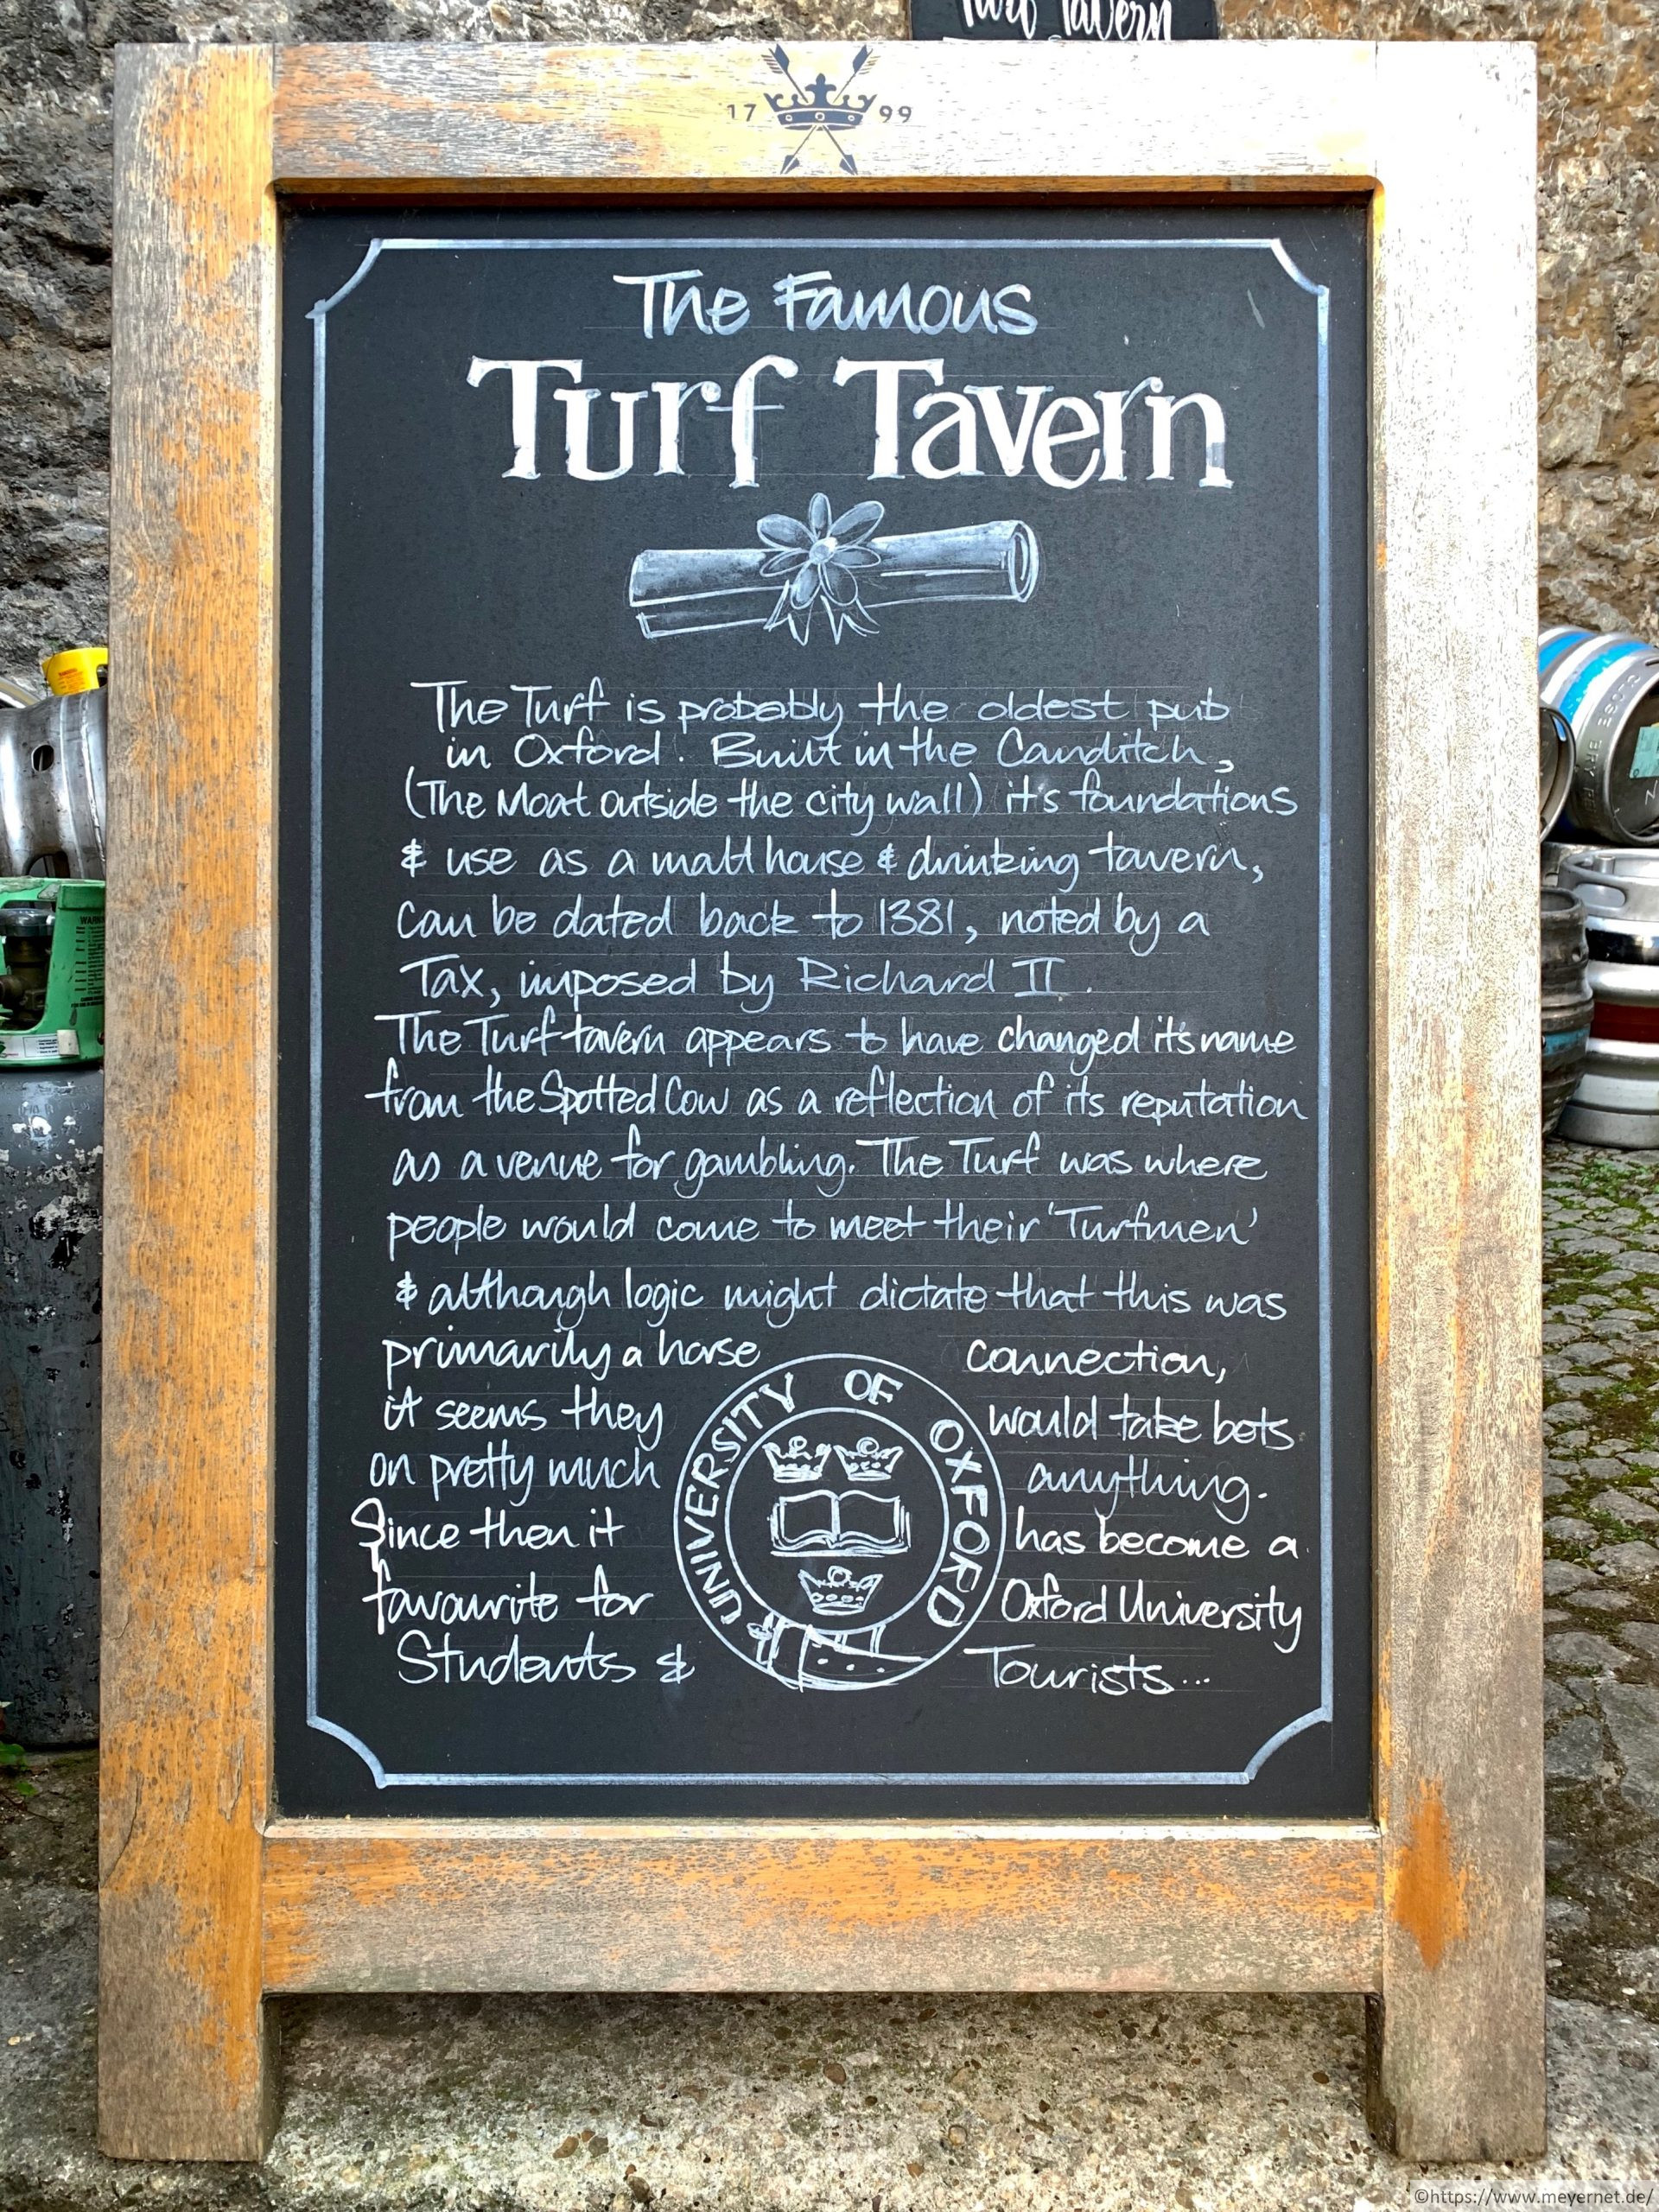 Turf Tavern
17 99
The Famous
Turf Tavern
The Turf is probably the oldest pub
in Oxford. Built in the Canditch,
(The Moat outside the city wall) it's foundations
& use as a malt house & drinking tavern,
can be dated back to 1381, noted by a
Tax, imposed by Richard II.
The Turf tavern appears to have changed it's name
from the Spotted Cow as a reflection of its reputation
as a venue for gambling. The Turf was where
people would come to meet their 'Turfmen'
& although logic might dictate that this was
primarily a horse connection,
it seems they would take bets
on pretty much anything.
Since then it has become a
favourite for Oxford University
Students & Tourists...
UNIVERSITY OF OXFORD
WARN
©https://www.meyernet.de/